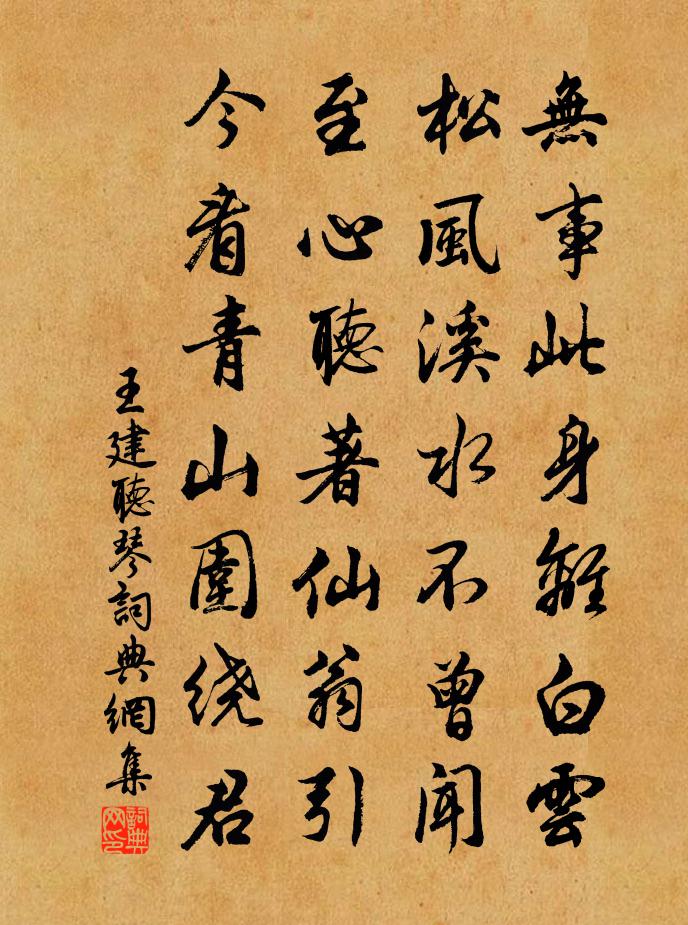 無事此身離白雲
松風溪水不曾聞
至心聽著仙翁引
今看青山圍繞君
王建聽琴詞典網集
詞典网印